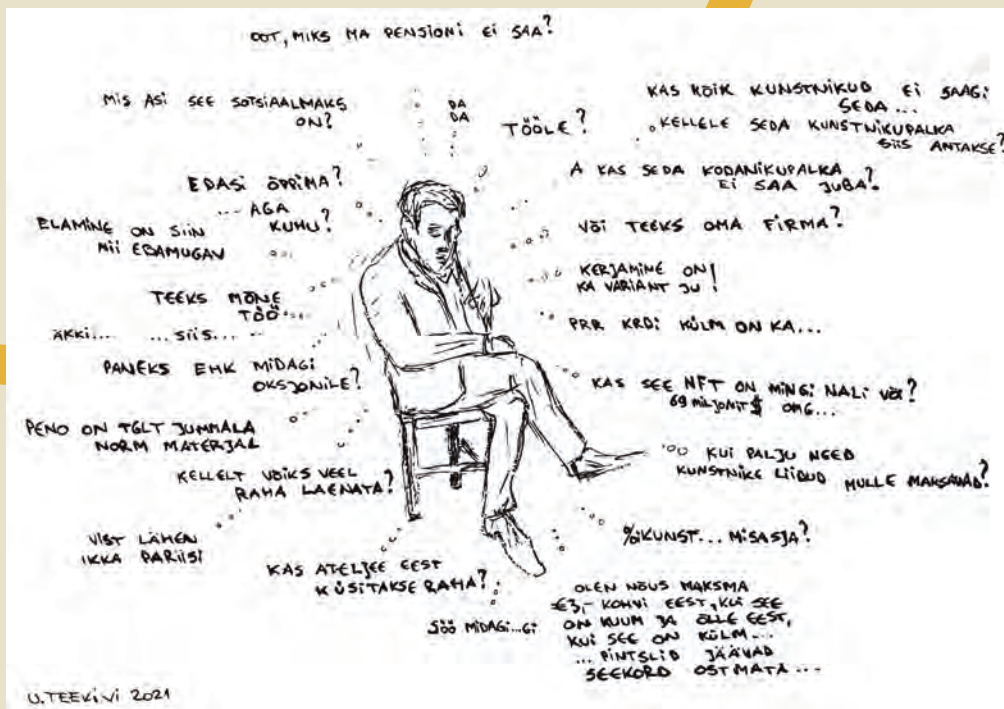 OOT, MIKS MA PENSIONI EI SAA?
MIS ASI SEE SOTSIAALMAKS
ON?
DA
DA
TÖÖLE?
KAS KÕIK KUNSTNIKUD EI SAAGI
SEDA...
KELLELE SEDA KUNSTNIKUPALKA
SIIS ANTAKSE?
EDASI ÕPPIMA?
... AGA
KUHU?
A KAS SEDA KODANIKUPALKA
EI SAA JUBA?
ELAMINE ON SIIN
NII EBAMUGAV
VÕI TEEKS OMA FIRMA?
TEEKS MÕNE
TÖÖ...
KERJAMINE ON
KA VARIANT JU!
ÄKKI... ...SIIS...
PRR KRDI KÜLM ON KA...
PANEKS EHK MIDAGI
OKSJONILE?
KAS SEE NFT ON MINGI NALI VÕI?
69 MILJONIT $ OMG...
PENO ON TGLT JUMMALA
NORM MATERJAL
KUI PALJU NEED
KUNSTNIKE LIIDUD MULLE MAKSAVAD?
KELLELT VÕIKS VEEL
RAHA LAENATA?
VIST LÄHEN
IKKA PARIISI
%KUNST... MISASJA?
KAS ATELJEE EEST
KÜSITAKSE RAHA?
SÖÖ MIDAGI...GI
OLEN NÕUS MAKSMA
€3,- KOHVI EEST, KUI SEE
ON KUUM JA ÕLLE EEST,
KUI SEE ON KÜLM...
... PINTSLID JÄÄVAD
SEEKORD OSTMATA...
U.TEEKIVI 2021